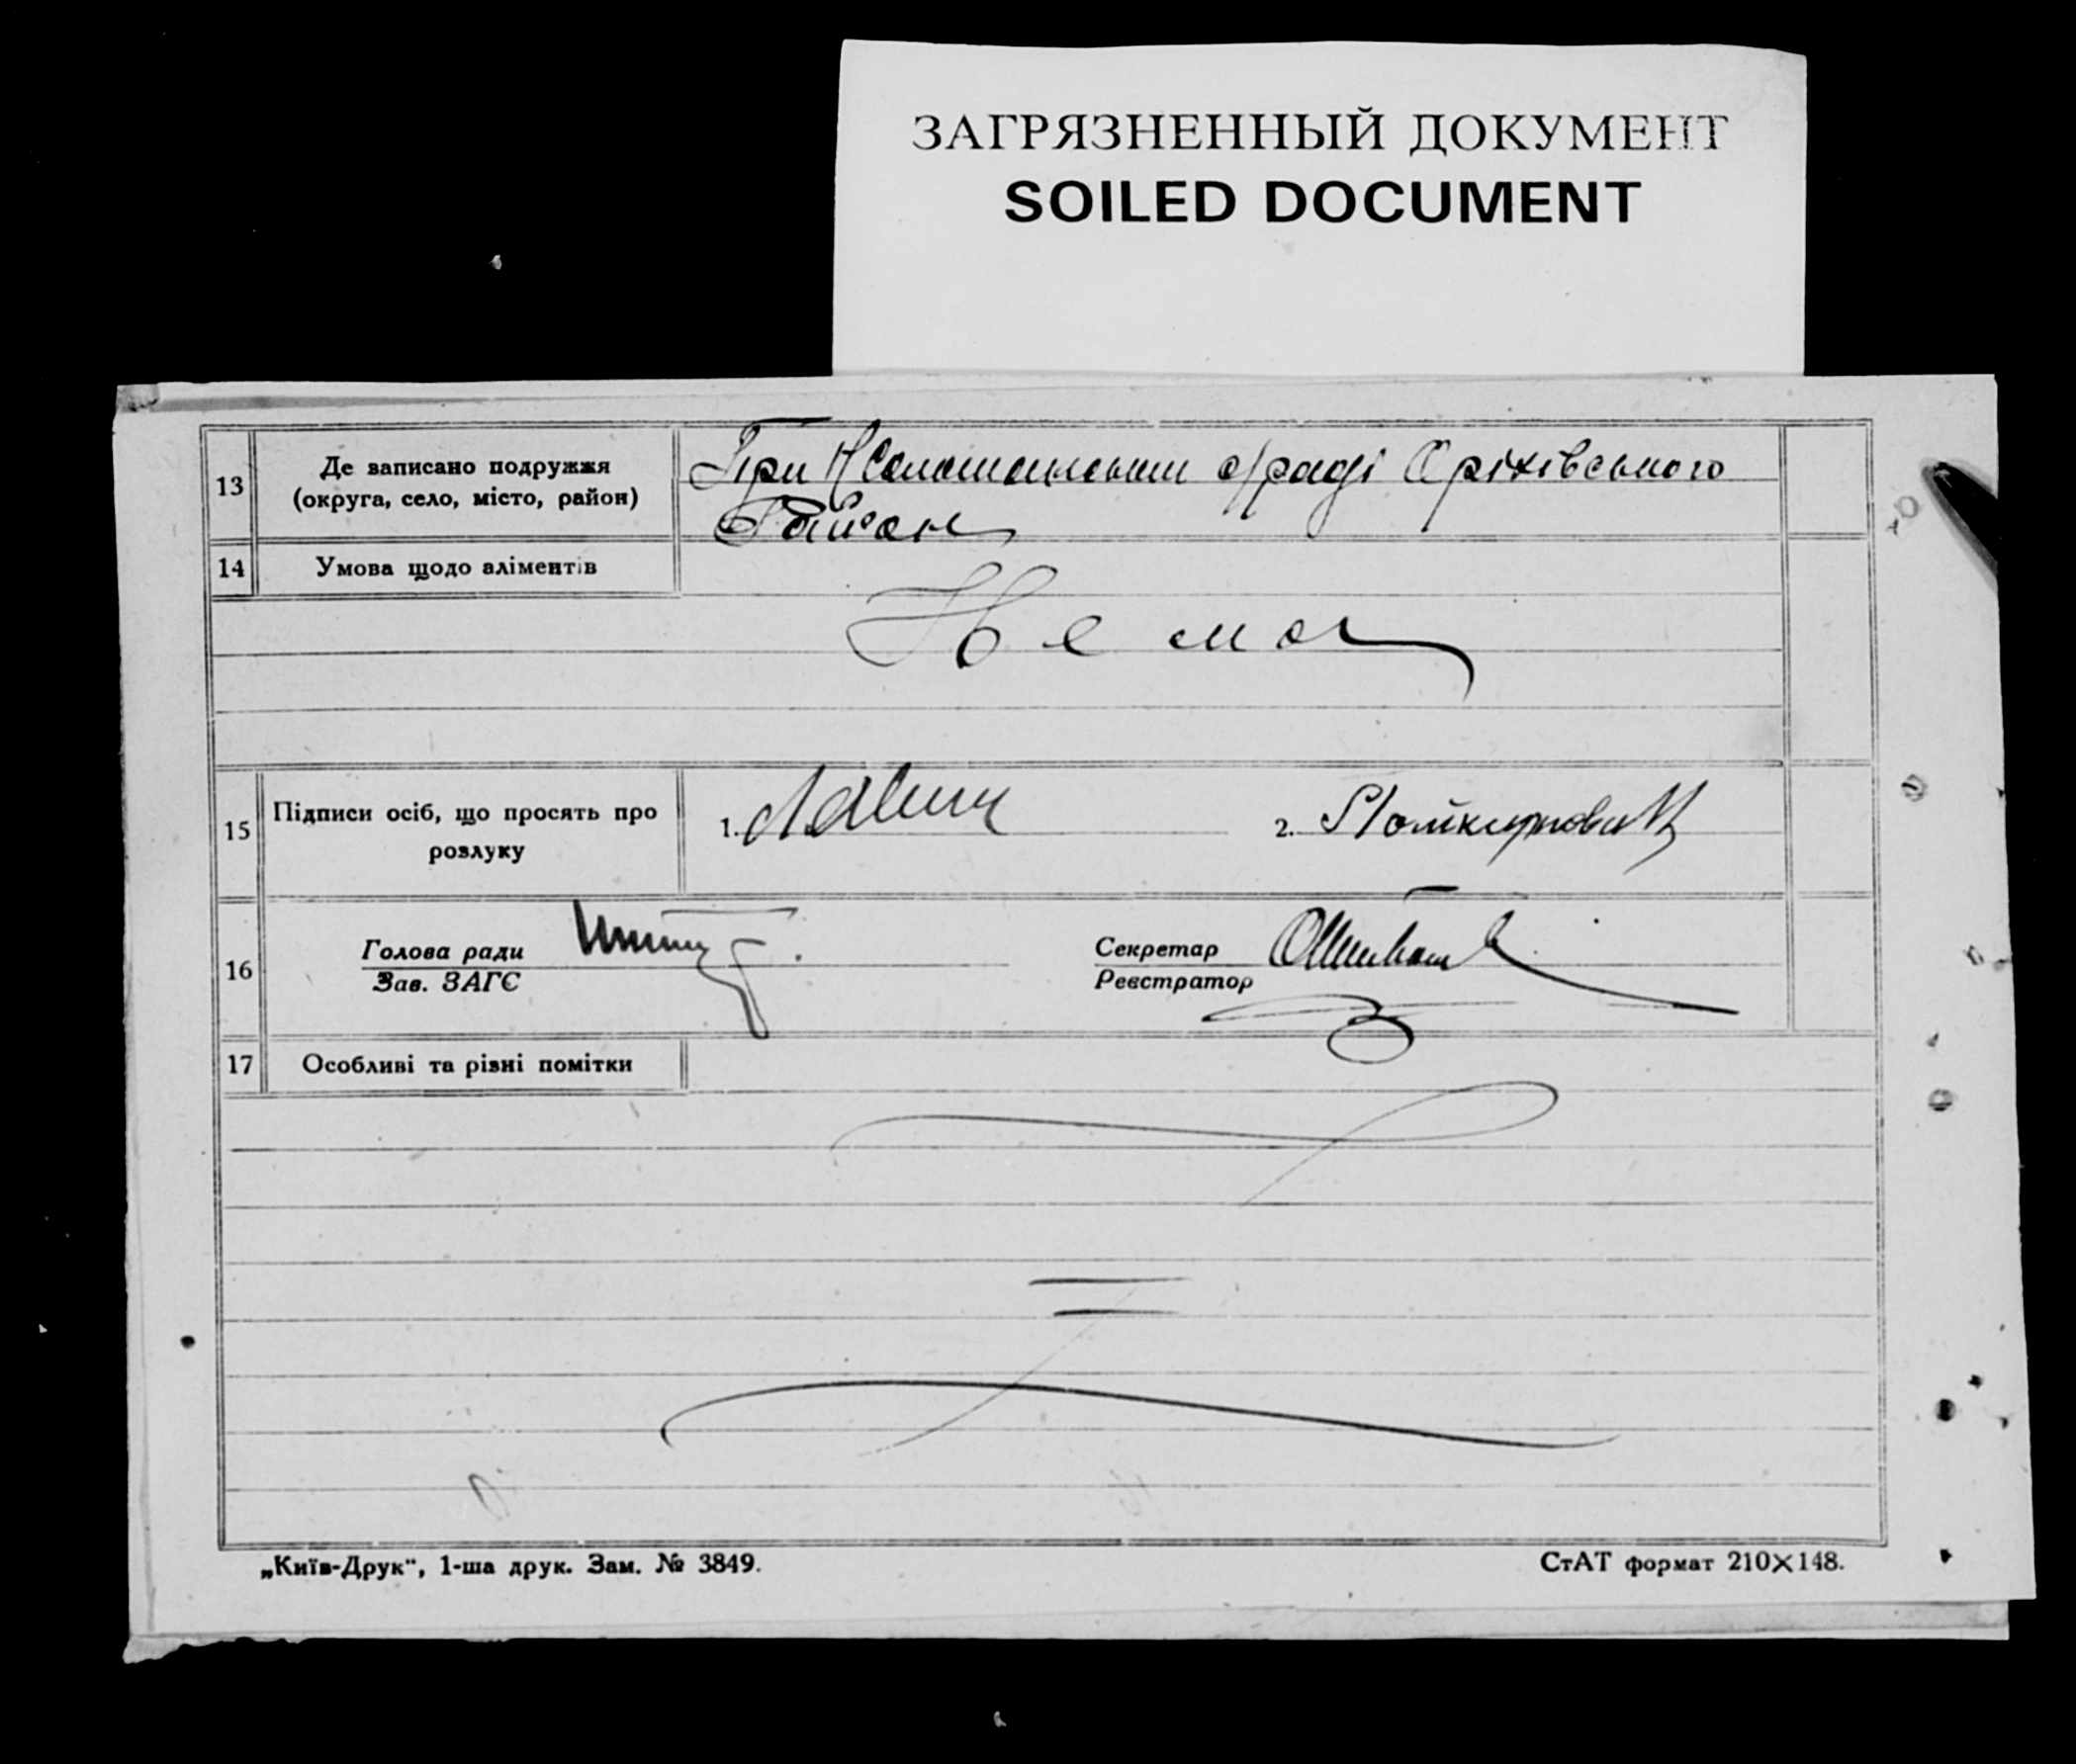 ЗАГРЯЗНЕННЫЙ ДОКУМЕНТ
SOILED DOCUMENT
13
Де записано подружжя
(округа, село, місто, район)
При с/раді Оріхівського
Район
14
Умова щодо аліментів
Нема
15
Підписи осіб, що просять про
розлуку
1.
2.
16
Голова ради
Зав. ЗАГС
Секретар
Реєстратор
17
Особливі та різні помітки
„Київ-Друк“, 1-ша друк. Зам. № 3849.
СтАТ формат 210×148.